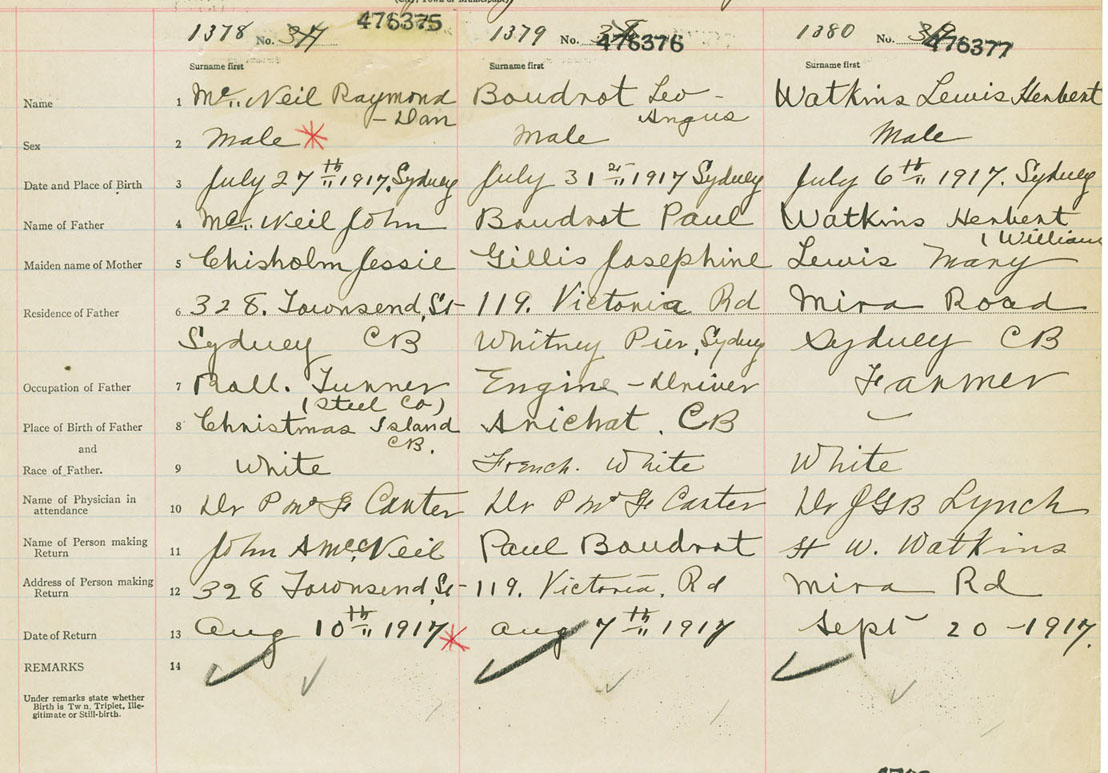 (City, Town or Municipality)
1378 No. 476375
1379 No. 476376
1380 No. 476377
Surname first Surname first Surname first
Name 1 Mc Neil Raymond Boudrot Leo - Watkins Lewis Herbert
- Dan Angus
Sex 2 Male Male Male
Date and Place of Birth 3 July 27th 1917, Sydney July 31st 1917 Sydney July 6th 1917. Sydney
Name of Father 4 Mc Neil John Boudrot Paul Watkins Herbert
(William
Maiden name of Mother 5 Chisholm Jessie Gillis Josephine Lewis Mary
Residence of Father 6 328. Townsend, St 119. Victoria Rd Mira Road
Sydney CB Whitney Pier, Sydney Sydney CB
Occupation of Father 7 Turner Engine - driver Farmer
(Steel Co)
Place of Birth of Father 8 Christmas Island Arichat. CB
CB.
and
Race of Father. 9 White French. White White
Name of Physician in attendance 10 Dr P Mc F Carter Dr P Mc F Carter Dr JGB Lynch
Name of Person making Return 11 John A McNeil Paul Boudrot H W. Watkins
Address of Person making Return 12 328 Townsend, St 119. Victoria. Rd Mira Rd
Date of Return 13 Aug 10th 1917 Aug 7th 1917 Sept 20 - 1917.
REMARKS 14
Under remarks state whether
Birth is Tw n, Triplet, Ille-
gitimate or Still-birth.